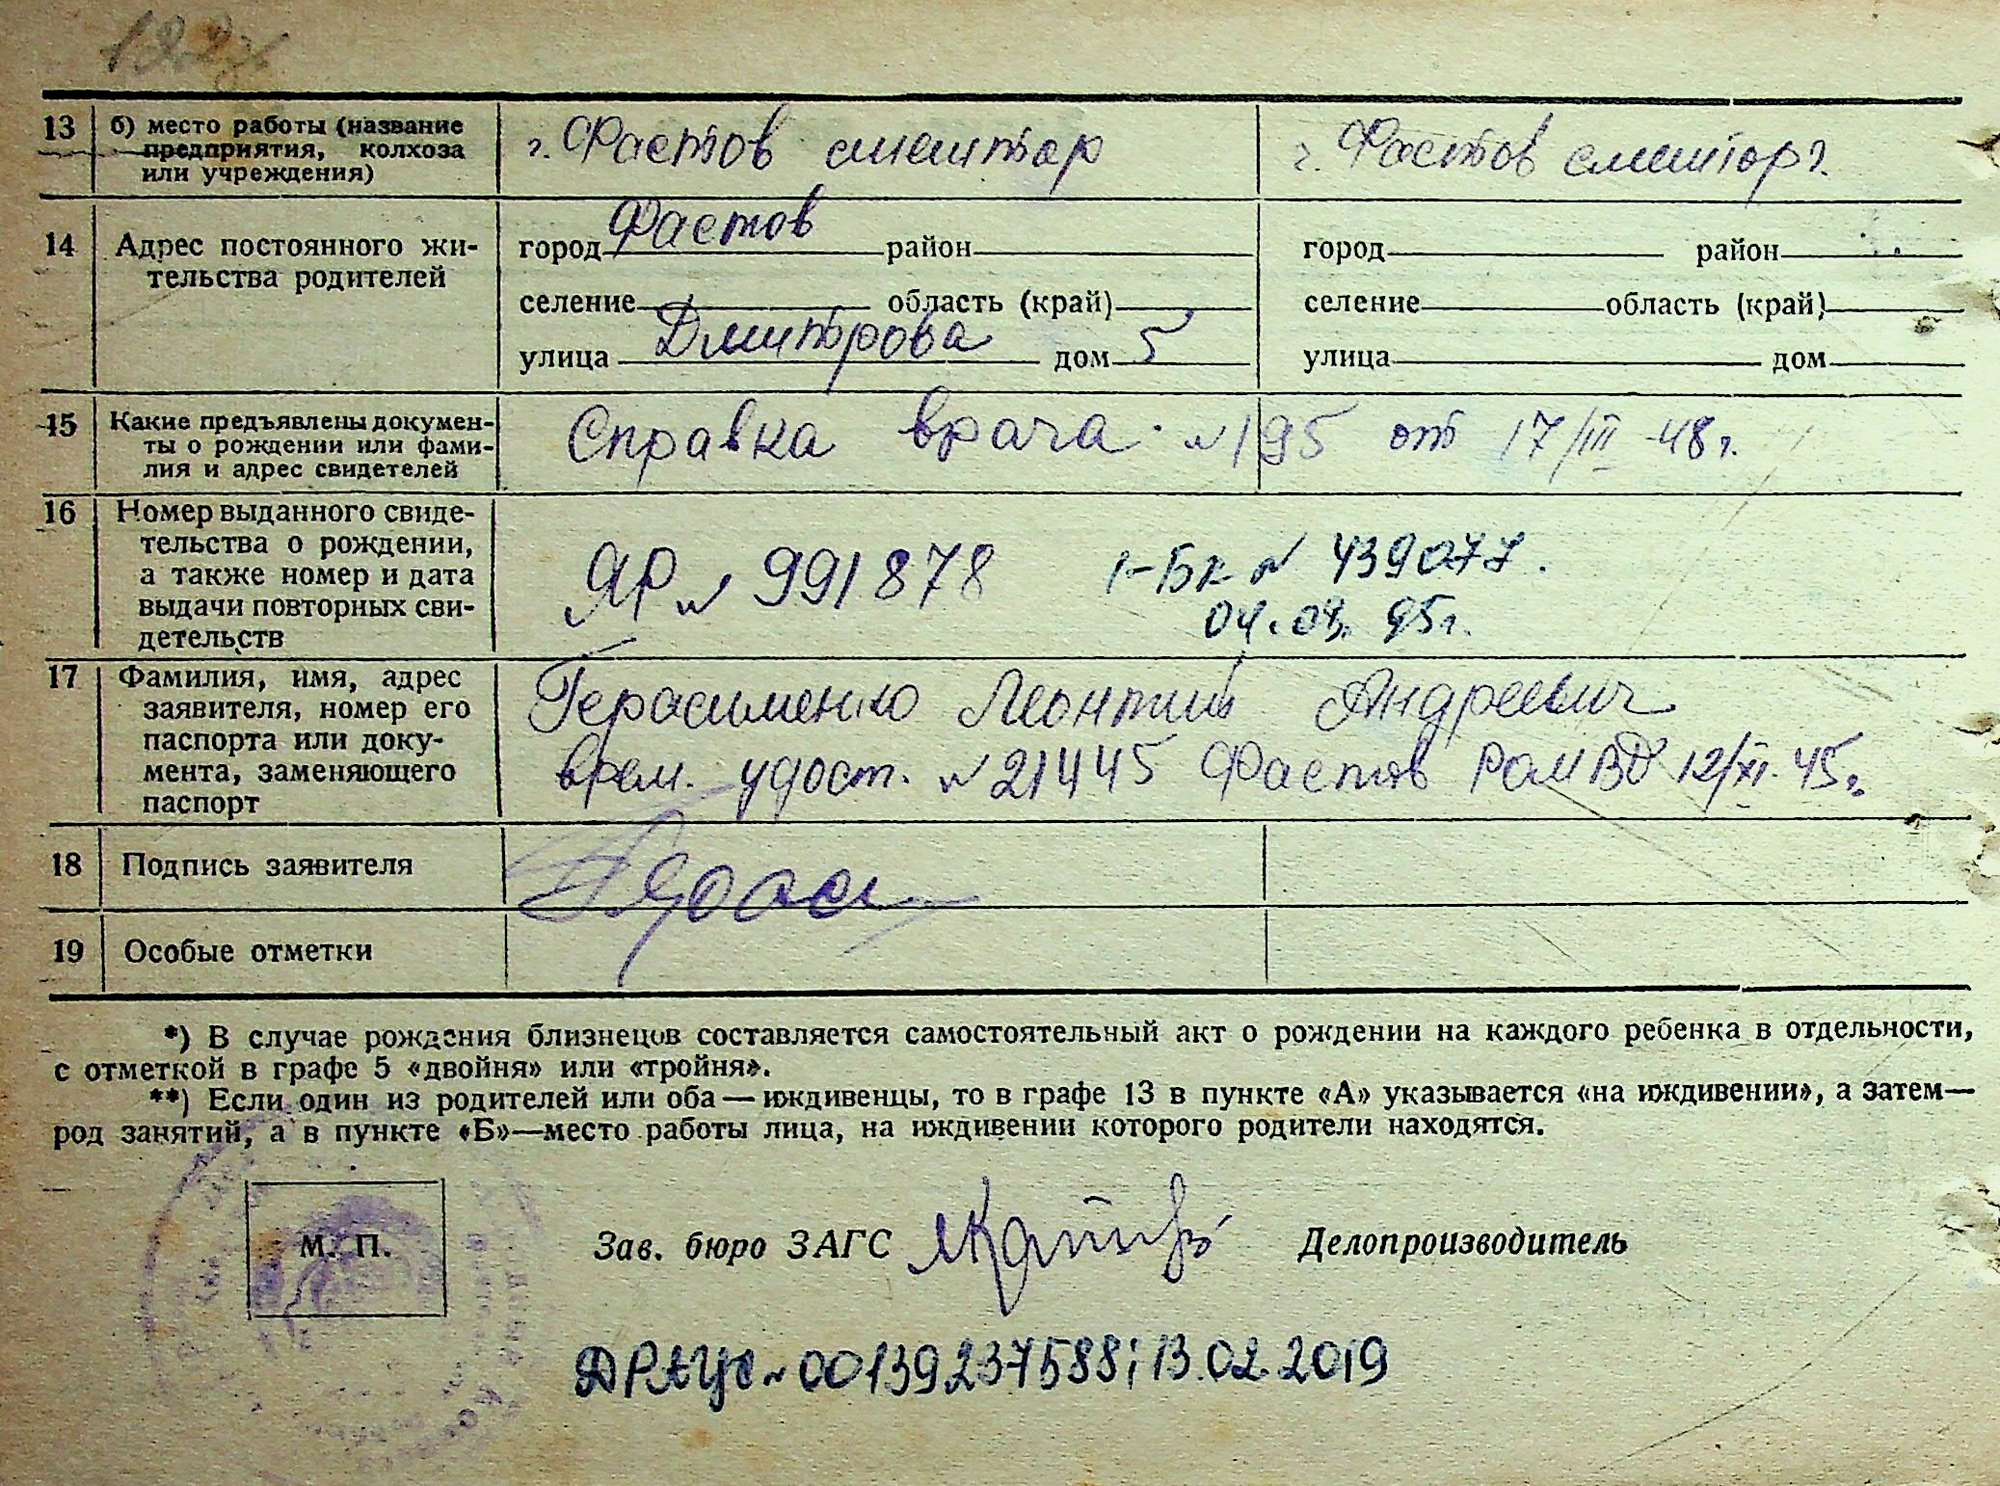 13 б) место работы (название г. Фастов смешторг г. Фастов смешторг.
предприятия, колхоза
или учреждения)
14 Адрес постоянного жи- город Фастов район город район
тельства родителей
селение область (край) селение область (край)
улица Дмитрова дом 5 улица дом
15 Какие предъявлены докумен- Справка врача №195 от 17/III-48г.
ты о рождении или фами-
лия и адрес свидетелей
16 Номер выданного свиде-
тельства о рождении, ЯР № 991878 1-БК № 439077.
а также номер и дата
выдачи повторных сви- 95г.
детельств
17 Фамилия, имя, адрес Герасименко Леонтий Андреевич
заявителя, номер его
паспорта или доку- врем. удост. №21445 Фастов РОМВД 12/XI.45г.
мента, заменяющего
паспорт
18 Подпись заявителя
19 Особые отметки
*) В случае рождения близнецов составляется самостоятельный акт о рождении на каждого ребенка в отдельности,
с отметкой в графе 5 «двойня» или «тройня».
**) Если один из родителей или оба — иждивенцы, то в графе 13 в пункте «А» указывается «на иждивении», а затем—
род занятий, а в пункте «Б»—место работы лица, на иждивении которого родители находятся.
М. П. Зав. бюро ЗАГС Делопроизводитель
ДРАЦС № 00139237588; 13.02.2019